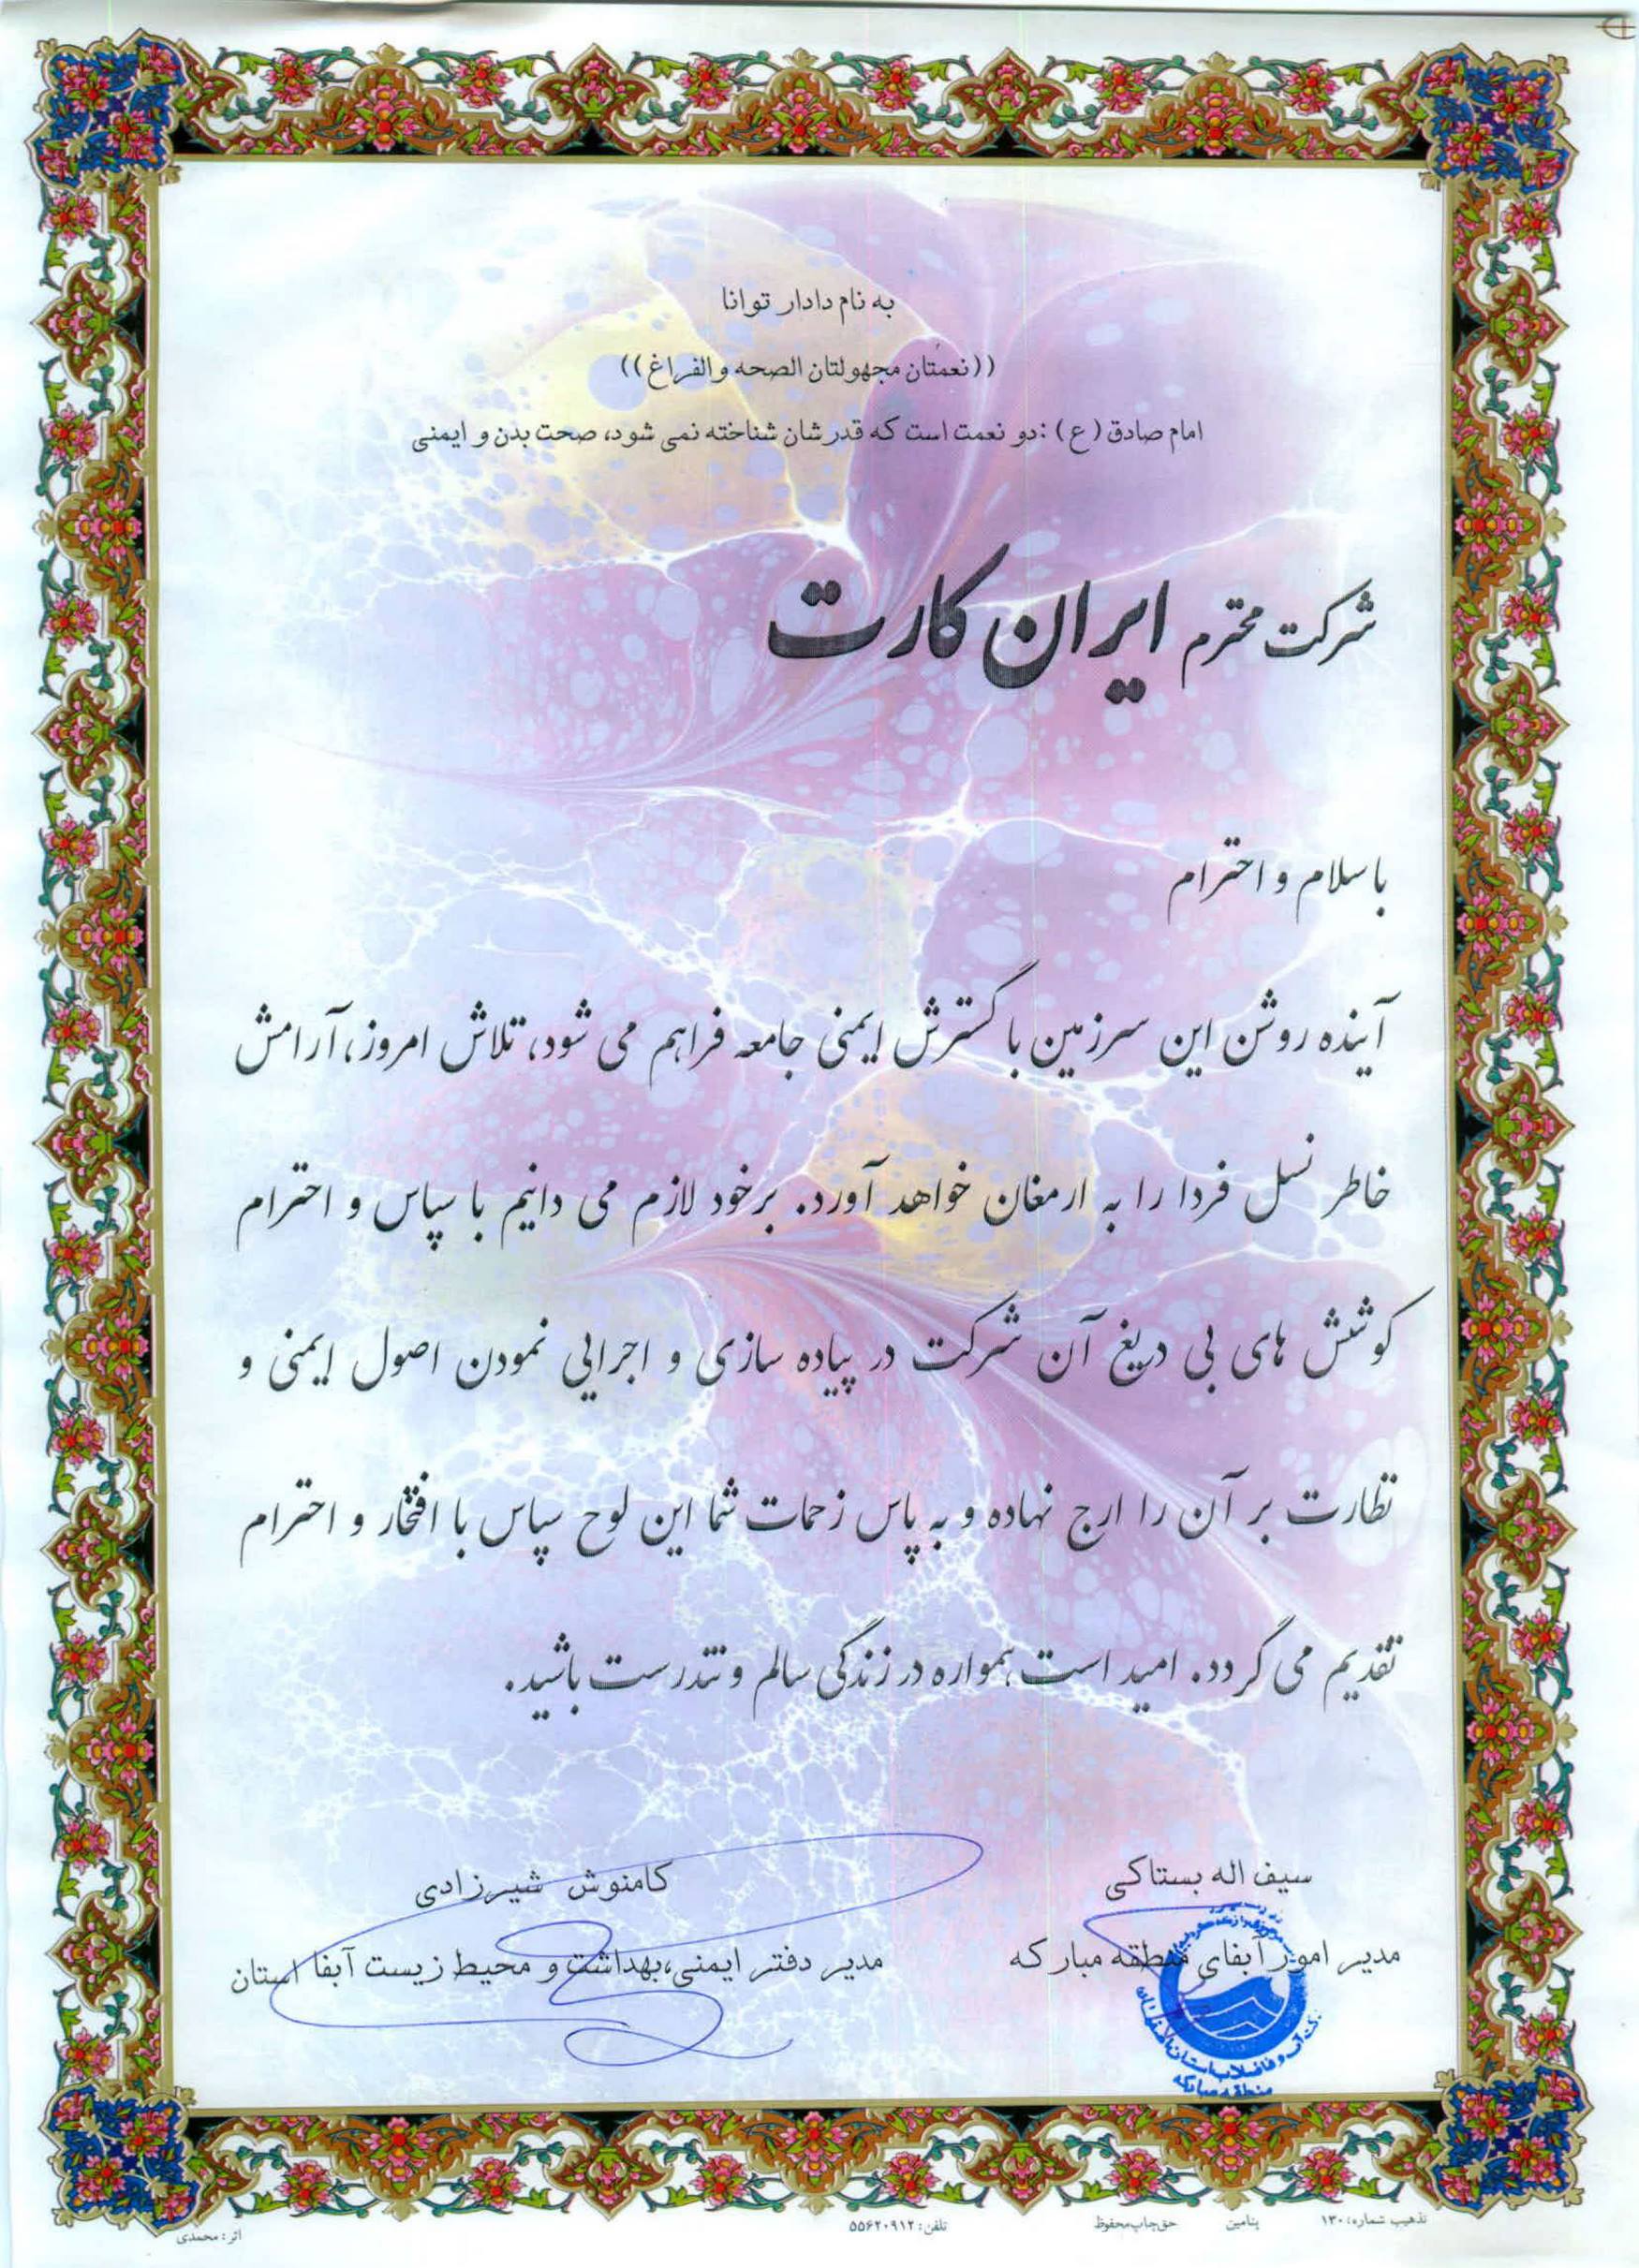 به نام دادار توانا
((نعمتان مجهولتان الصحه والفراغ))
امام صادق (ع) :دو نعمت است که قدرشان شناخته نمی شود، صحت بدن و ایمنی
شرکت محترم ایران کارت
با سلام و احترام
آینده روشن این سرزمین با گسترش ایمنی جامعه فراهم می شود، تلاش امروز، آرامش
خاطر نسل فردا را به ارمغان خواهد آورد. برخود لازم می دانیم با سپاس و احترام
کوشش های بی دریغ آن شرکت در پیاده سازی و اجرایی نمودن اصول ایمنی و
نظارت بر آن را ارج نهاده و به پاس زحمات شما این لوح سپاس با افتخار و احترام
تقدیم می گردد. امید است همواره در زندگی سالم و تندرست باشید.
سیف اله بستاکی
مدیر امور آبفای منطقه مبارکه
کامنوش شیرزادی
مدیر دفتر ایمنی،بهداشت و محیط زیست آبفا استان
آب و فاضلاب استان اصفهان
منطقه مبارکه
تذهیب شماره: ۱۳۰
بنامین
حق چاپ محفوظ
تلفن: ۵۵۶۲۰۹۱۲
اثر: محمدی